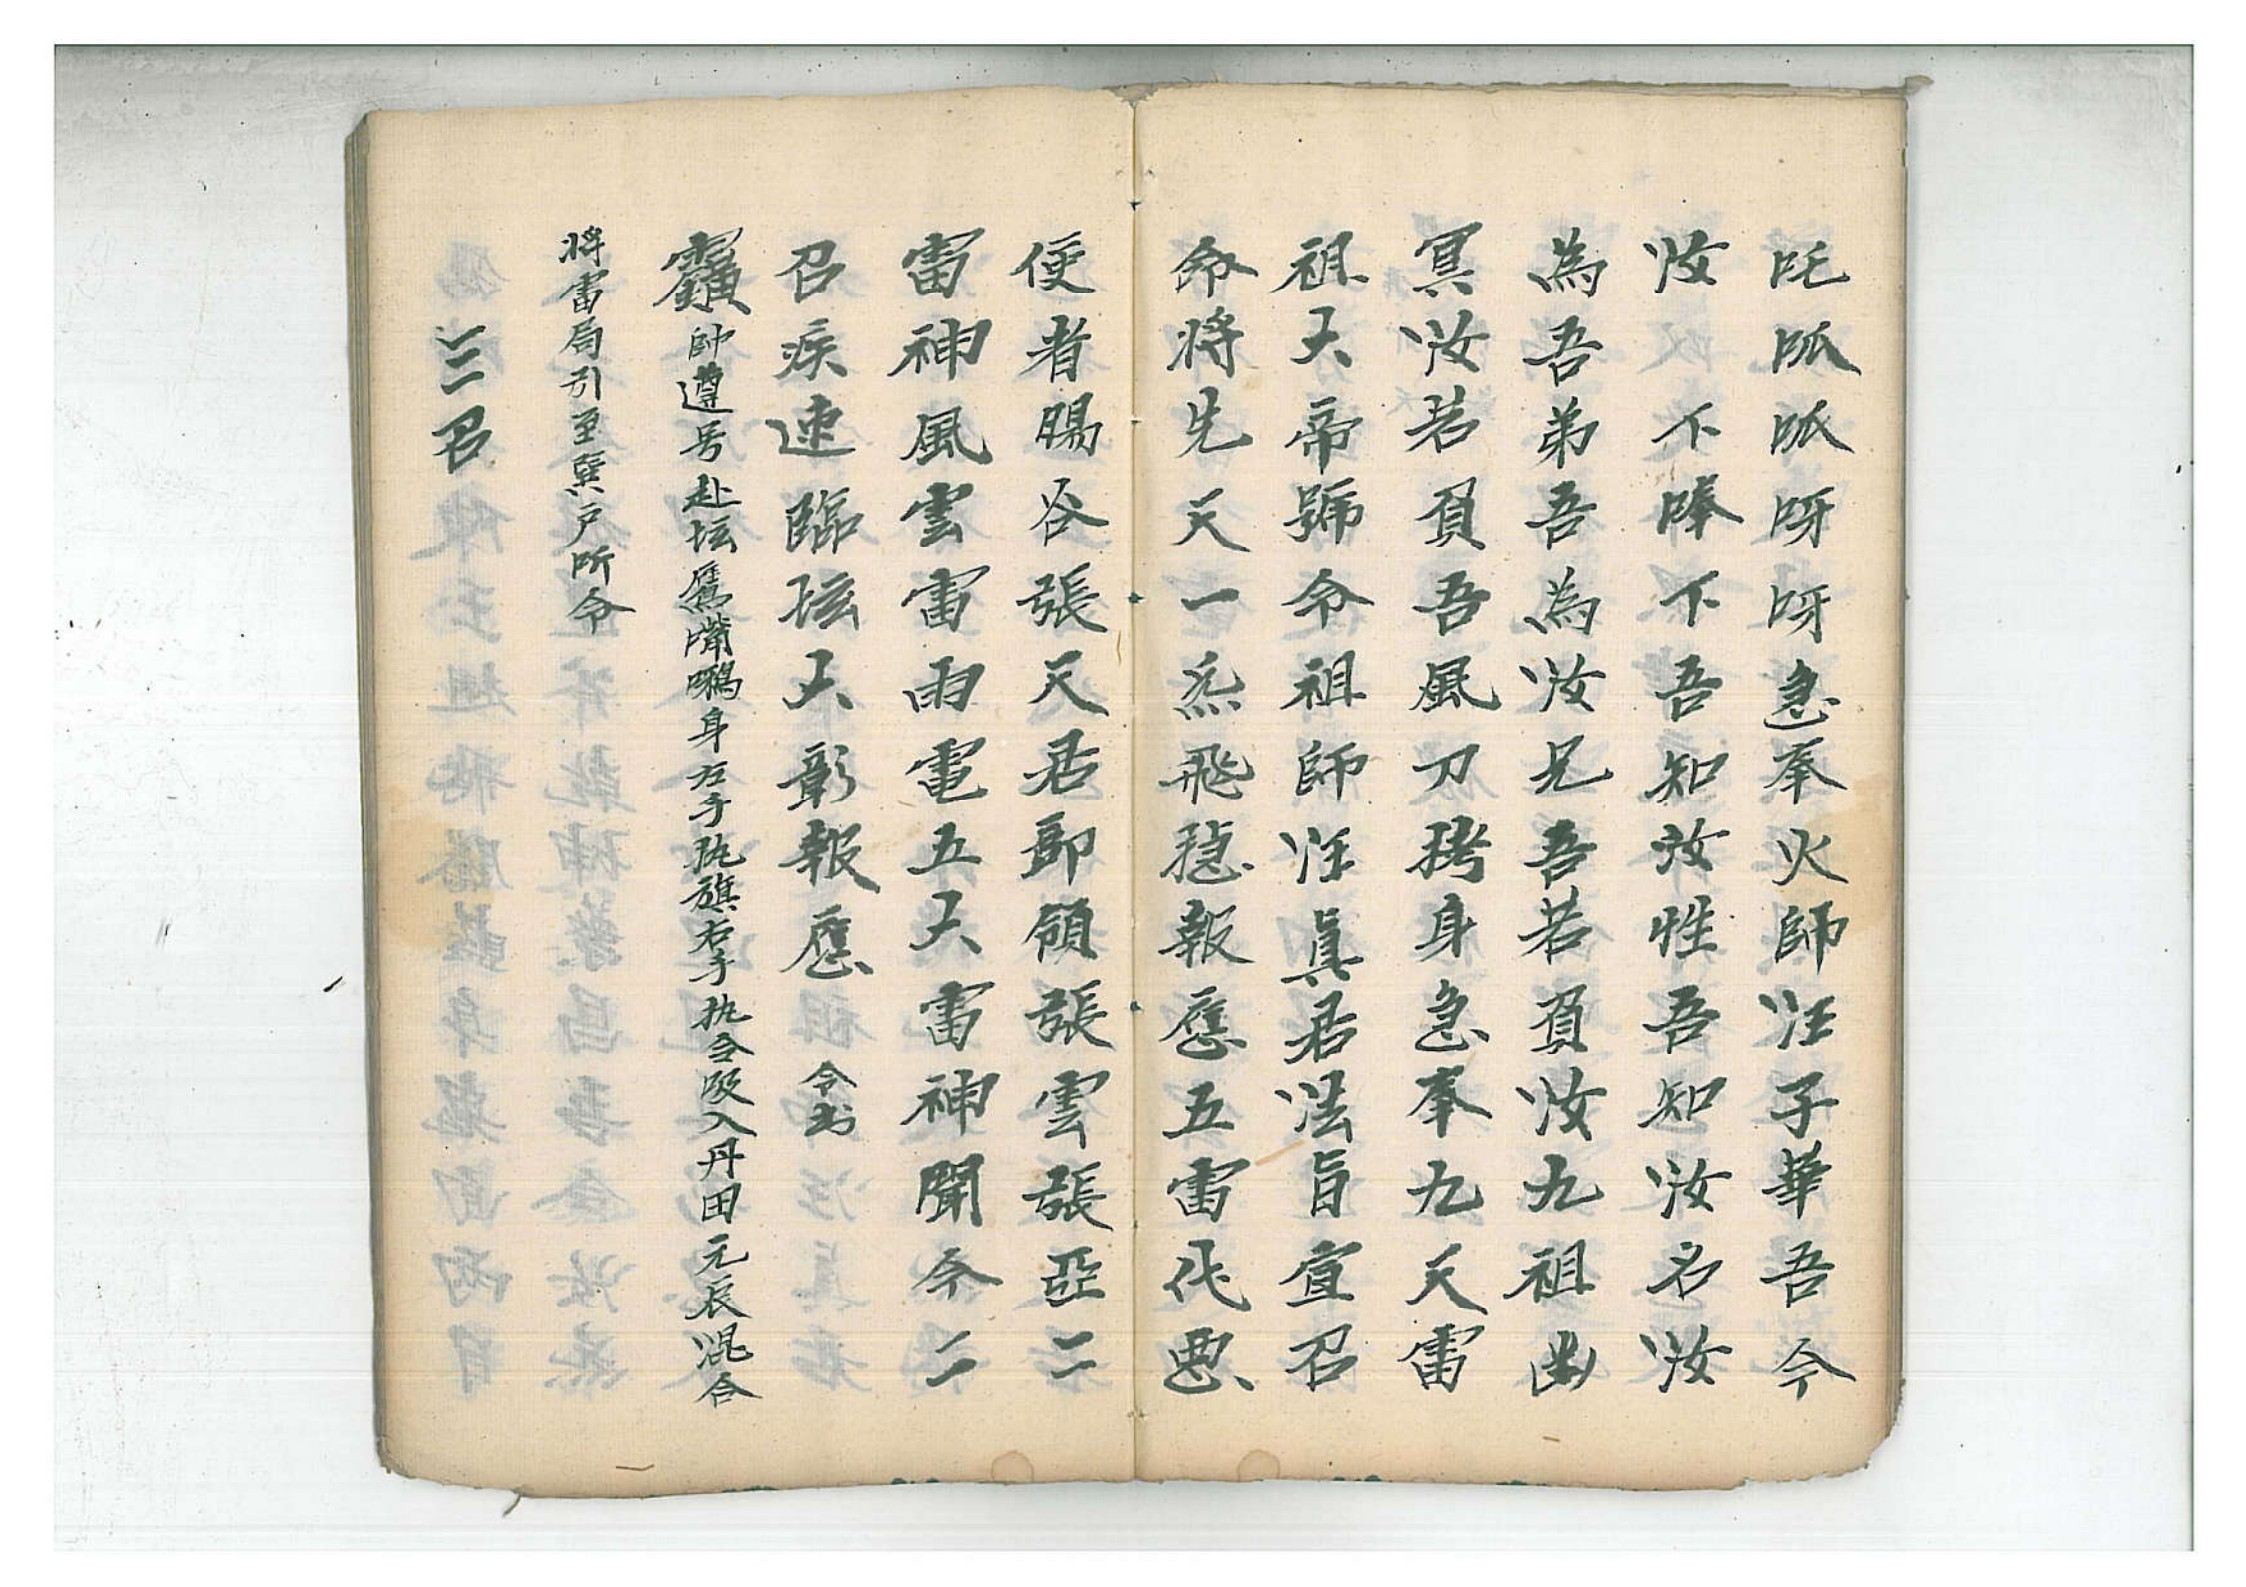 吒呱呱呀呀急奉火師汪子華吾今
汝不唪下吾知汝性吾知汝名汝
為吾弟吾為汝兄吾若負汝九祖幽
冥汝若負吾風刀拷身急奉九天雷
祖大帝號令祖師汪真君法旨宣召
命將先天一炁飛㨗報應五雷伐惡
使者賜谷張天君部領張雲張亞二
雷神風雲雷雨電五大雷神聞今二
召疾速臨坛大彰報應 令出
帥遵号赴坛鷹嘴鴉身左手执旗右手执令吸入丹田元辰混合
將雷局引至巽户所令
三召